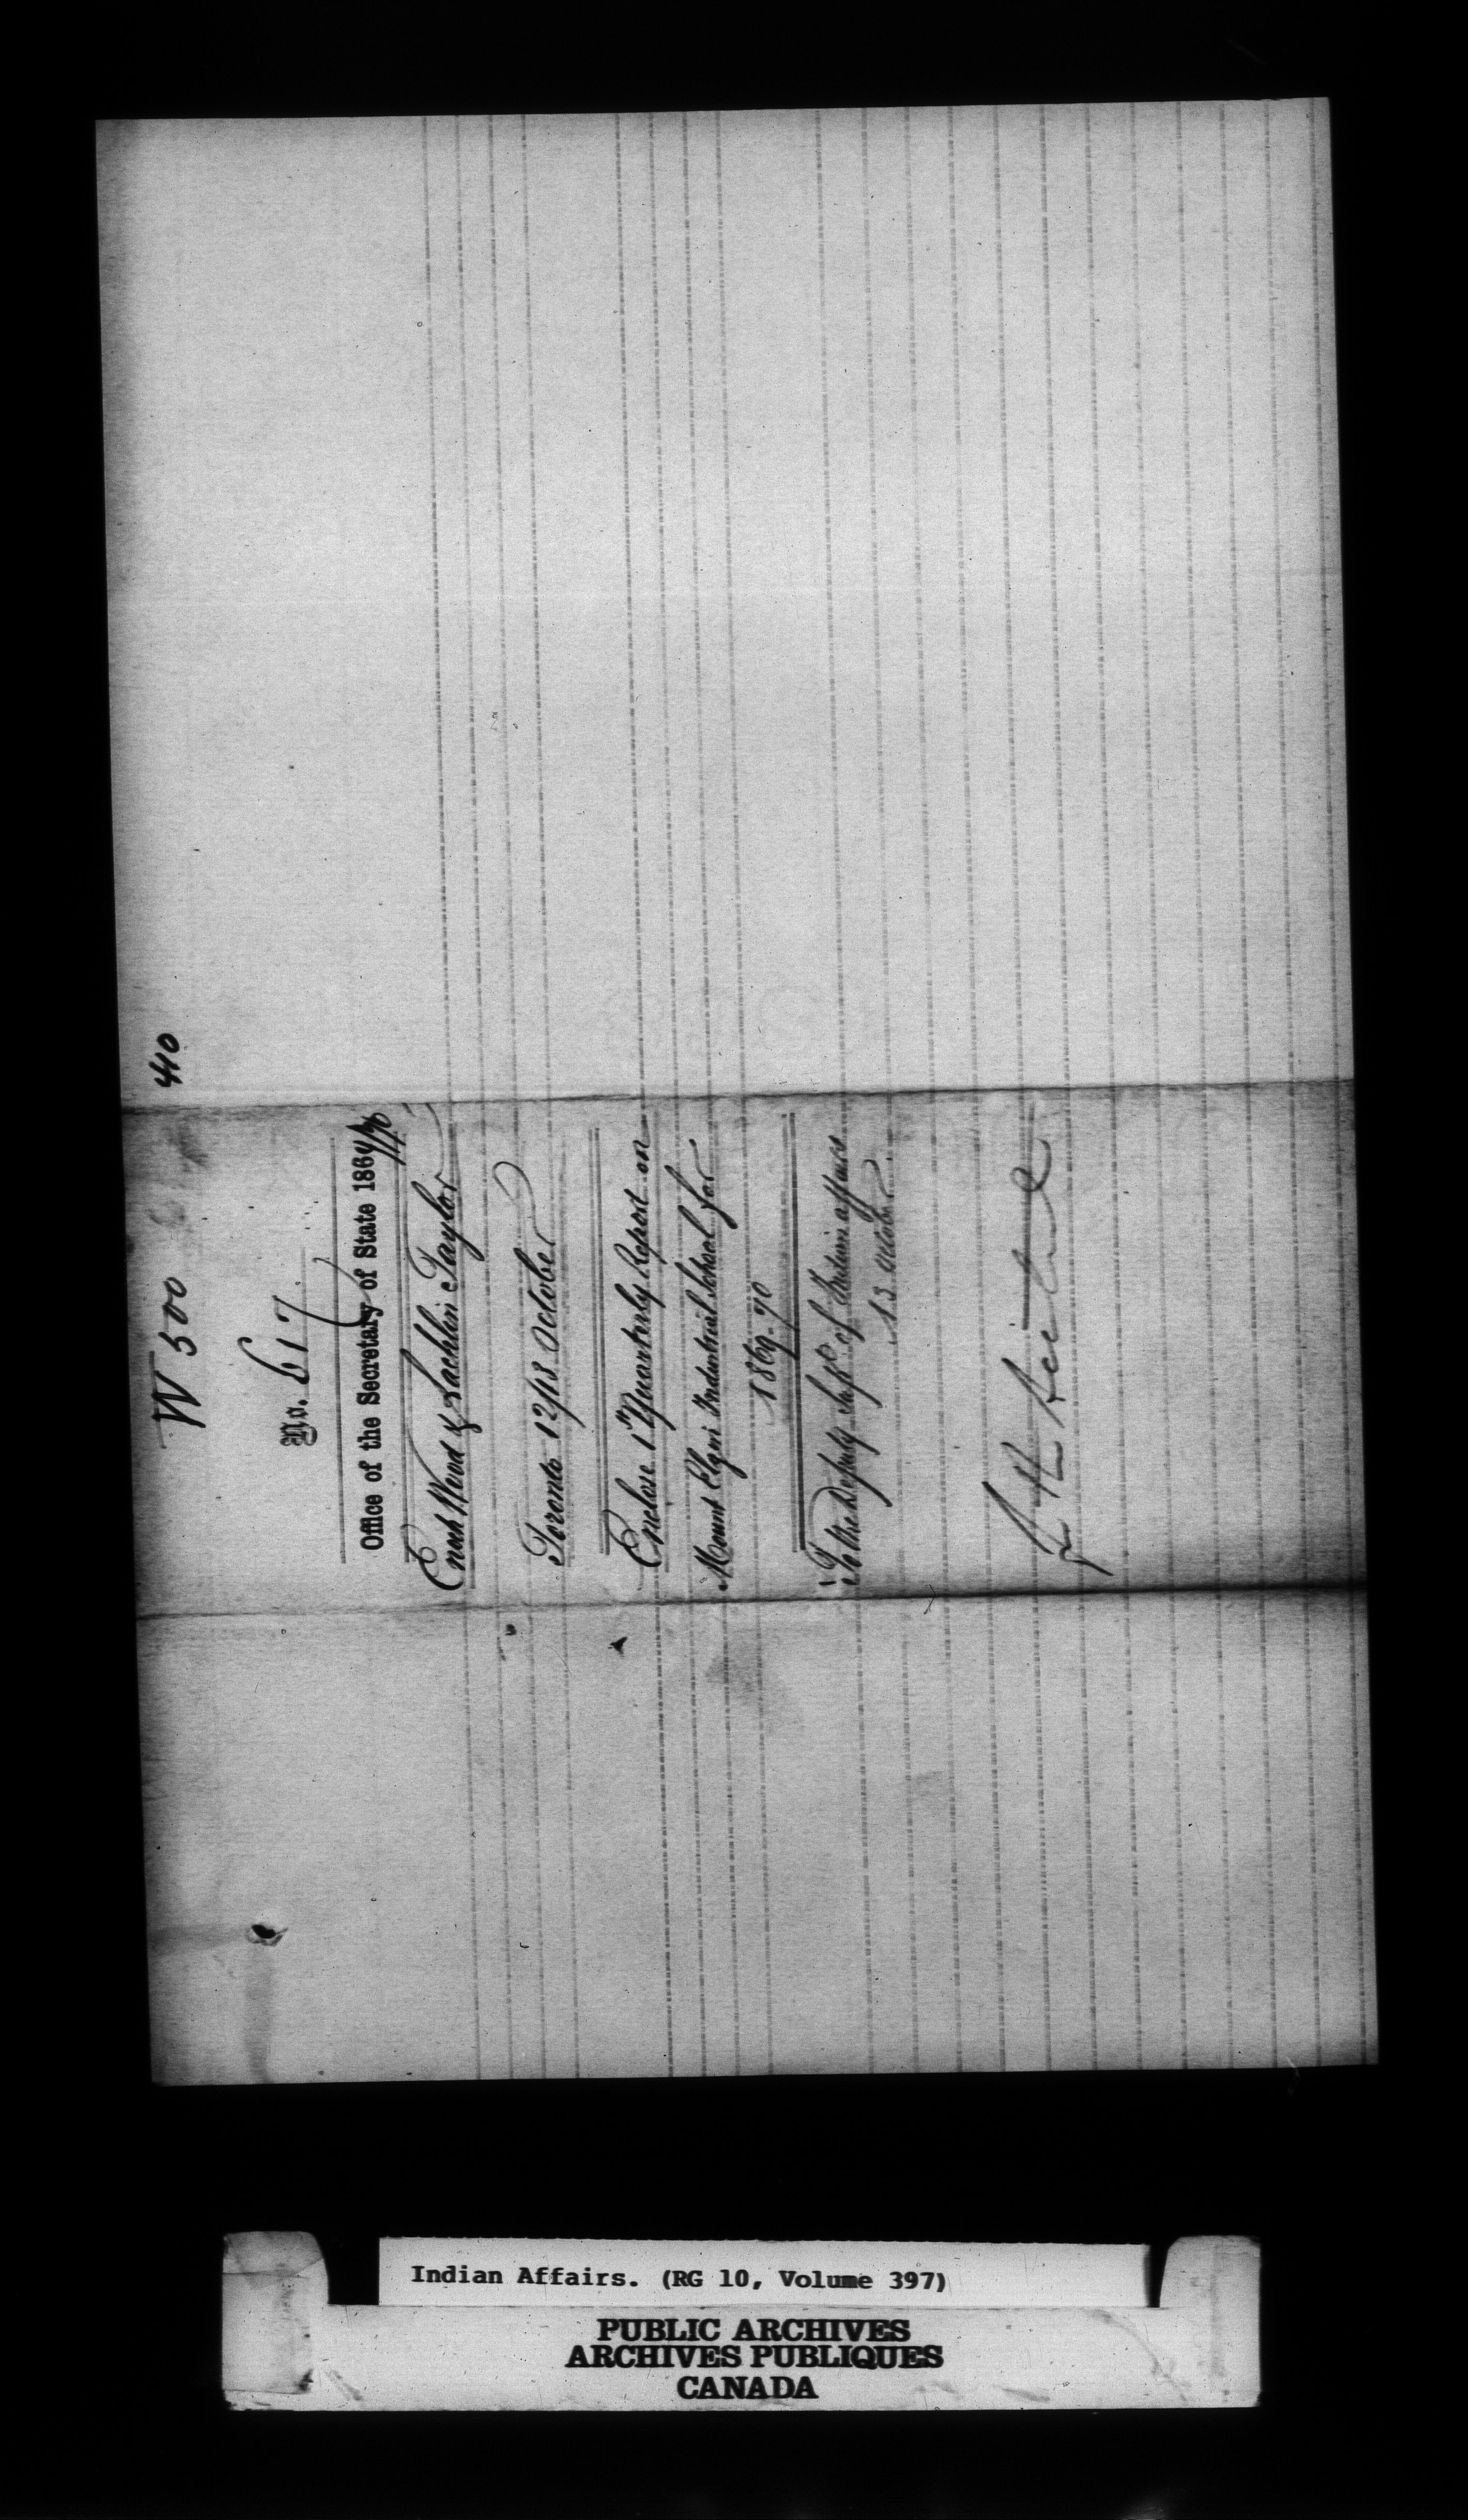 410
W 500
No. 617
Office of the Secretary of State 1869/70
Enoch Wood & Lachlin Taylor
Toronto 12/13 October
Enclose 1st Quarterly Report on
Mount Elgin Industrial School for
1869-70
To the Deputy Supt of Indian affairs
13 October
Indian Affairs. (RG 10, Volume 397)
PUBLIC ARCHIVES
ARCHIVES PUBLIQUES
CANADA